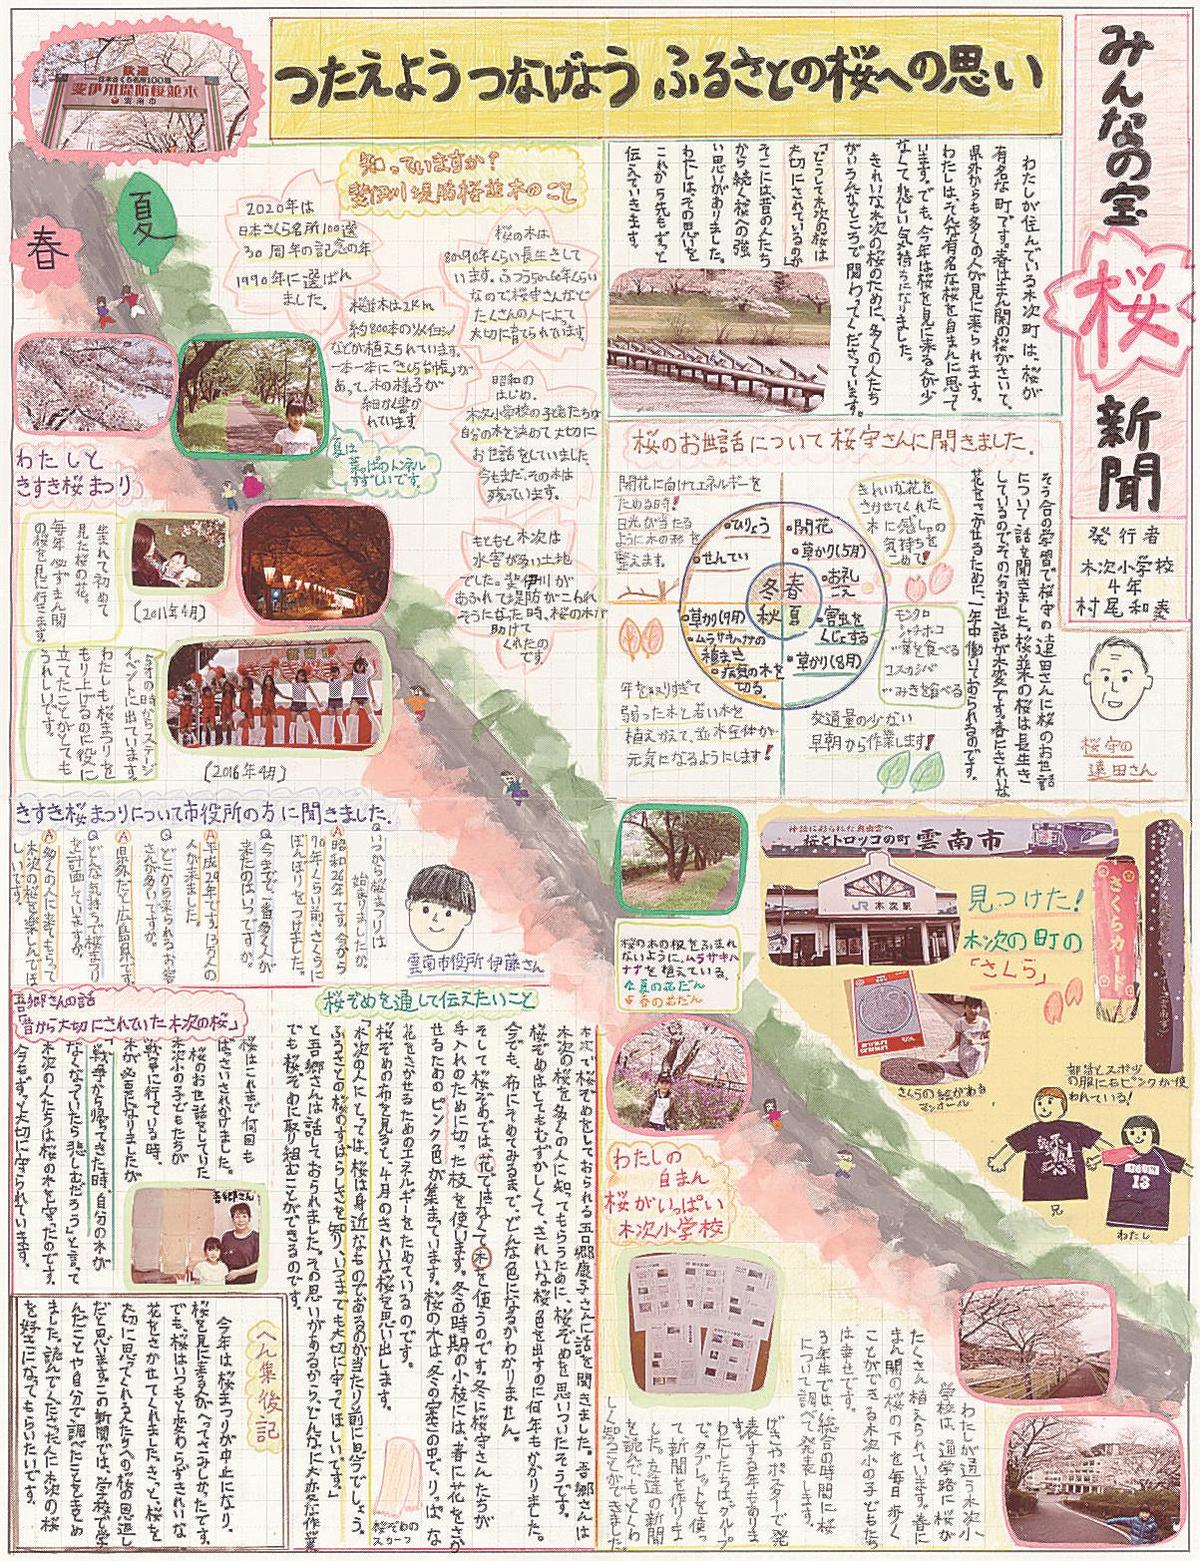 みんなの宝
桜
新聞
発行者
木次小学校
4年
村尾和奏
つたえよう つなげよう ふるさとの桜への思い
歓迎
日本さくら名所100選
斐伊川堤防桜並木
雲南市
わたしが住んでいる木次町は、桜が
有名な町です。春はまん開の桜がさいて、
県外からも多くの人が見に来られます。
わたしは、そんな有名な桜を自まんに思って
います。でも、今年は桜を見に来る人が少
なくて、悲しい気持ちになりました。
きれいな木次の桜のために、多くの人たち
がいろんなところで関わってくださっています。
「どうして木次の桜は
大切にされているのか」
そこには昔の人たち
から続く桜への強
い思いがありました。
わたしは、その思いを
これから先もずっと
伝えていきます。
知っていますか?
斐伊川堤防桜並木のこと
2020年は
日本さくら名所100選
30周年の記念の年
1990年に選ばれ
ました。
桜の木は
80〜90年くらい長生きして
います。ふつう50〜60年くらい
なので桜守さんなど
たくさんの人によって
大切に育てられています。
桜並木は2km
約800本のソメイヨシノ
などが植えられています。
一本一本に「さくら台帳」が
あって、木の様子が
細かく書か
れています。
昭和の
はじめ、
木次小学校の子どもたちは
自分の木を決めて大切に
お世話をしていました。
今もまだ、その木は
残っています。
もともと木次は
水害が多い土地
でした。斐伊川が
あふれて堤防がこわれ
そうになった時、桜の木が
助けて
くれたの
です。
春
夏
夏は
葉っぱのトンネル
すずしいです。
わたしと
きすき桜まつり
生まれて初めて
見た桜の花。
毎年必ずまん開
の桜を見に行きます。
(2011年4月)
イベントに出ています。
わたしも桜まつりを
もり上げるのに役に
立てたことがとても
うれしいです。
(2016年4月)
桜のお世話について桜守さんに聞きました。
そう合の学習で桜守の遠田さんに桜のお世話
について話を聞きました。桜並木の桜は長生き
しているのでその分お世話が大変です。春にきれいな
花をさかせるために、一年中働いておられるのです。
開花に向けてエネルギーを
ためる時!
日光が当たる
ように木の形を
整えます。
きれいな花を
さかせてくれた
木に感しゃの
気持ちを
こめて!
・ひりょう
・せんてい
・開花
・草かり(5月)
・お礼ごえ
冬 春
秋 夏
・草かり(9月)
・ムラサキハナナの
種まき
・病気の木を
切る
・害虫を
くじょする
・草かり(8月)
モンクロ
シャチホコ
…葉を食べる
コスカシバ
…みきを食べる
年をとりすぎて
弱った木と若い木を
植えかえて、並木全体が
元気になるようにします!
交通量の少ない
早朝から作業します!
桜守の
遠田さん
きすき桜まつりについて市役所の方に聞きました。
Q いつから桜まつりは
始まりましたか。
A 昭和26年です。今から
70年くらい前、さくらに
ぼんぼりをつけました。
Q 今までで一番多く人が
来たのはいつですか。
A 平成29年です。15万人の
人が来ました。
Q どこから来られるお客
さんが多いですか。
A 県外だと広島県です。
Q どんな気持ちで桜まつり
を計画していますか。
A 多くの人に来てもらって
木次の桜を楽しんでほ
しいです。
雲南市役所 伊藤さん
桜の木の根をふまれ
ないように、ムラサキハ
ナナを植えている。
夏の花だん
春の花だん
神話に彩られた奥出雲へ
桜とトロッコの町 雲南市
JR 木次駅
見つけた!
木次の町の
「さくら」
さくらカード
さくらの絵がある
マンホール
部活とスポ少
の服にもピンクが使
われている!
兄
わたし
13
吾郷さんの話
「昔から大切にされていた木次の桜」
桜はこれまで何回も
ばっさいされかけました。
桜のお世話をしていた
木次小の子どもたちが
戦争に行っている時、
木が必要になりましたが
「戦争から帰ってきた時、自分の木が
なくなっていたら悲しむだろう」と言って
木次の人たちは桜の木を守ったのです。
今もずっと大切に守られています。
吾郷さん
桜ぞめを通して伝えたいこと
木次で桜ぞめをしておられる吾郷康子さんに話を聞きました。吾郷さんは
木次の桜を多くの人に知ってもらうために、桜ぞめを思いついたそうです。
桜ぞめはとてもむずかしくて、きれいな桜色を出すのに何年もかかりました。
今でも、布にそめてみるまで、どんな色になるかわかりません。
そして桜ぞめでは、花ではなくて木を使うのです。冬に桜守さんたちが
手入れのために切った枝を使います。冬の時期の小枝には、春に花をさか
せるためのピンク色が集まっています。桜の木は、冬の寒さの中で、りっぱな
花をさかせるためのエネルギーをためているのです。
桜ぞめの布を見ると、4月のきれいな桜を思い出します。
「木次の人にとっては、桜は身近なものであるのが当たり前に思うでしょう。
ふるさとの桜のすばらしさを知り、いつまでも大切に守ってほしいです。」
と吾郷さんは話しておられました。その思いがあるから、どんなに大変な作業
でも桜ぞめに取り組むことができるのです。
桜ぞめの
スカーフ
へん集後記
今年は桜まつりが中止になり、
桜を見に来る人がへってさみしかったです。
でも、桜はいつもと変わらずきれいな
花をさかせてくれました。きっと、桜を
大切に思ってくれる人たちへの桜の恩返し
だと思います。この新聞では、学校で学
んだことや自分で調べたことをまとめ
ました。読んでくださった人に木次の桜
を好きになってもらいたいです。
わたしの
自まん
桜がいっぱい
木次小学校
わたしが通う木次小
学校は、通学路に桜が
たくさん植えられています。春に
まん開の桜の下を毎日歩く
ことができる木次小の子どもたち
は幸せです。
3年生では、総合の時間に桜
について調べて発表します。
げきやポスターで発
表する年もあります。
わたしたちは、グループ
で、タブレットを使っ
て新聞を作りま
した。友達の新聞
を読んでもくわ
しく知ることができました。